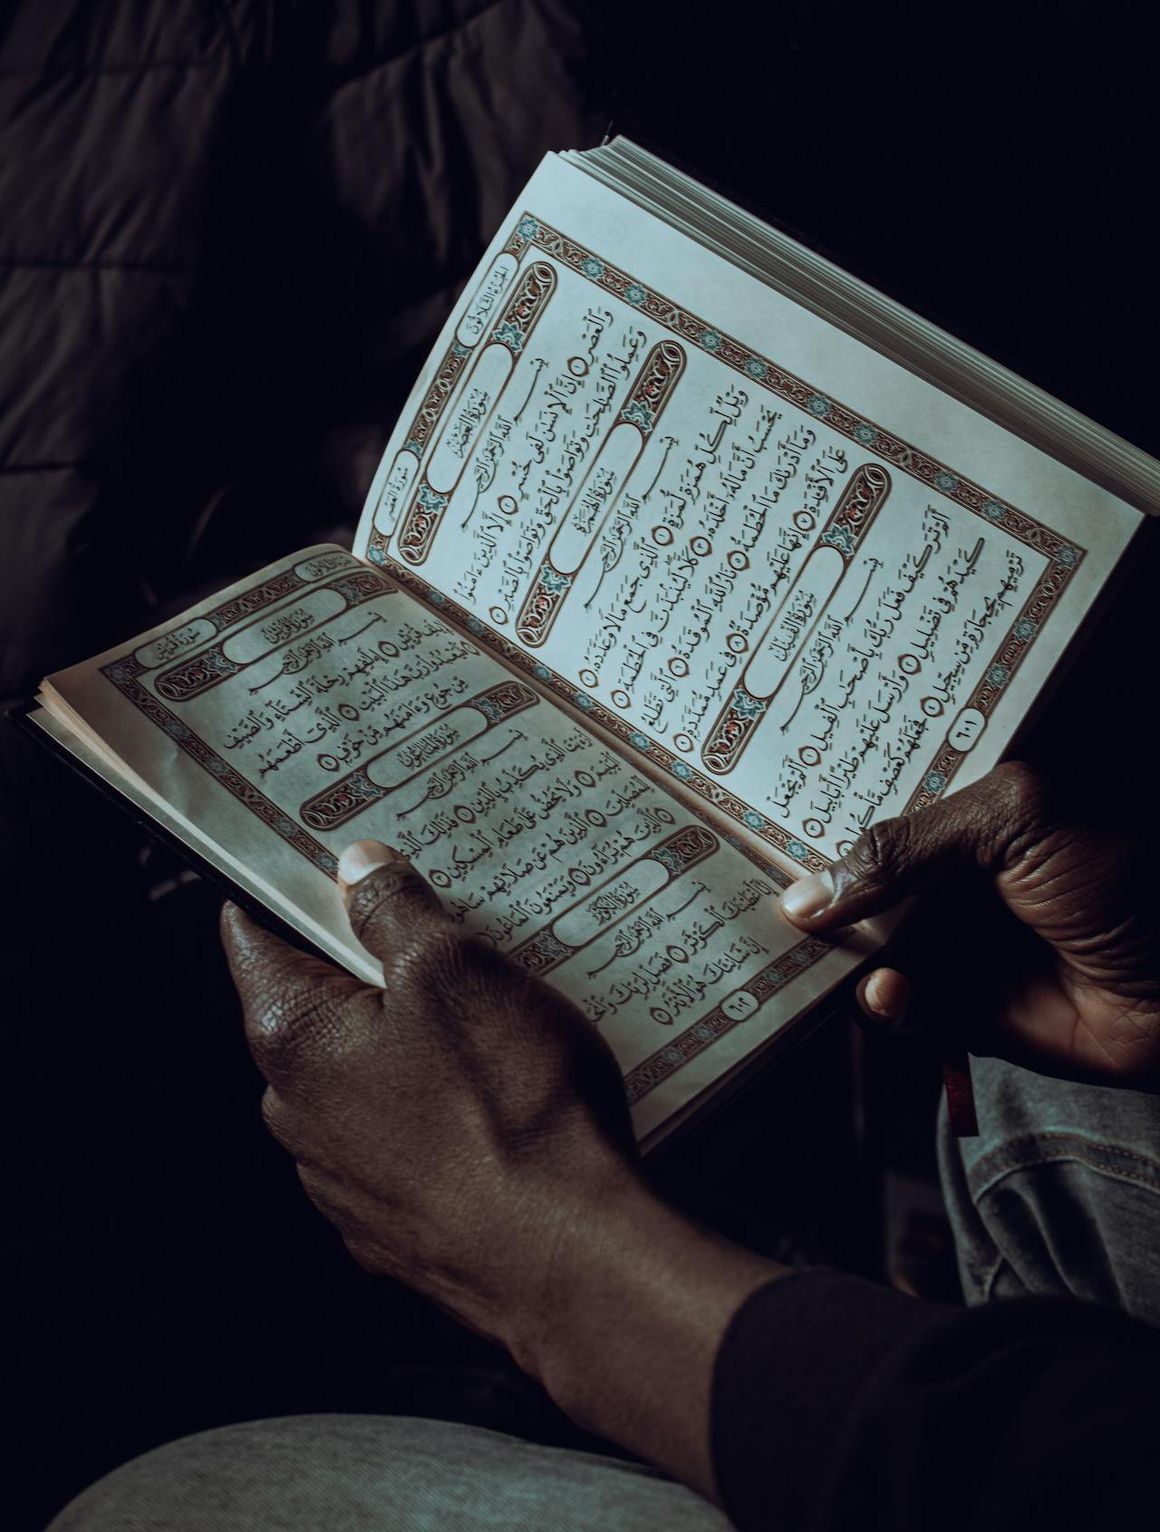 الجُزءُ الثَّلاثُونَ
سُورَةُ العَصْرِ
سُورَةُ العَصْرِ
بِسْمِ ٱللَّهِ ٱلرَّحْمَٰنِ ٱلرَّحِيمِ
وَٱلْعَصْرِ ١ إِنَّ ٱلْإِنسَٰنَ لَفِى خُسْرٍ ٢ إِلَّا ٱلَّذِينَ ءَامَنُوا۟
وَعَمِلُوا۟ ٱلصَّٰلِحَٰتِ وَتَوَاصَوْا۟ بِٱلْحَقِّ وَتَوَاصَوْا۟ بِٱلصَّبْرِ ٣
سُورَةُ الهُمَزَةِ
بِسْمِ ٱللَّهِ ٱلرَّحْمَٰنِ ٱلرَّحِيمِ
وَيْلٌ لِّكُلِّ هُمَزَةٍ لُّمَزَةٍ ١ ٱلَّذِى جَمَعَ مَالًا وَعَدَّدَهُۥ ٢
يَحْسَبُ أَنَّ مَالَهُۥٓ أَخْلَدَهُۥ ٣ كَلَّا لَيُنۢبَذَنَّ فِى ٱلْحُطَمَةِ ٤
وَمَآ أَدْرَىٰكَ مَا ٱلْحُطَمَةُ ٥ نَارُ ٱللَّهِ ٱلْمُوقَدَةُ ٦ ٱلَّتِى تَطَّلِعُ
عَلَى ٱلْأَفْـِٔدَةِ ٧ إِنَّهَا عَلَيْهِم مُّؤْصَدَةٌ ٨ فِى عَمَدٍ مُّمَدَّدَةٍۭ ٩
سُورَةُ الفِيلِ
بِسْمِ ٱللَّهِ ٱلرَّحْمَٰنِ ٱلرَّحِيمِ
أَلَمْ تَرَ كَيْفَ فَعَلَ رَبُّكَ بِأَصْحَٰبِ ٱلْفِيلِ ١ أَلَمْ يَجْعَلْ
كَيْدَهُمْ فِى تَضْلِيلٍ ٢ وَأَرْسَلَ عَلَيْهِمْ طَيْرًا أَبَابِيلَ ٣
تَرْمِيهِم بِحِجَارَةٍ مِّن سِجِّيلٍ ٤ فَجَعَلَهُمْ كَعَصْفٍ مَّأْكُولٍۭ
٦٠١
سُورَةُ قُرَيْشٍ
سُورَةُ قُرَيْشٍ
بِسْمِ ٱللَّهِ ٱلرَّحْمَٰنِ ٱلرَّحِيمِ
لِإِيلَٰفِ قُرَيْشٍ ١ إِۦلَٰفِهِمْ رِحْلَةَ ٱلشِّتَآءِ وَٱلصَّيْفِ
فَلْيَعْبُدُوا۟ رَبَّ هَٰذَا ٱلْبَيْتِ ٣ ٱلَّذِىٓ أَطْعَمَهُم
مِّن جُوعٍ وَءَامَنَهُم مِّنْ خَوْفٍۭ ٤
سُورَةُ المَاعُونِ
بِسْمِ ٱللَّهِ ٱلرَّحْمَٰنِ ٱلرَّحِيمِ
أَرَءَيْتَ ٱلَّذِى يُكَذِّبُ بِٱلدِّينِ ١ فَذَٰلِكَ ٱلَّذِى
ٱلْيَتِيمَ ٢ وَلَا يَحُضُّ عَلَىٰ طَعَامِ ٱلْمِسْكِينِ ٣
لِّلْمُصَلِّينَ ٤ ٱلَّذِينَ هُمْ عَن صَلَاتِهِمْ سَاهُونَ
ٱلَّذِينَ هُمْ يُرَآءُونَ ٦ وَيَمْنَعُونَ ٱلْمَاعُونَ
سُورَةُ الكَوْثَرِ
بِسْمِ ٱللَّهِ ٱلرَّحْمَٰنِ ٱلرَّحِيمِ
إِنَّآ أَعْطَيْنَٰكَ ٱلْكَوْثَرَ ١ فَصَلِّ لِرَبِّكَ وَٱنْحَرْ
إِنَّ شَانِئَكَ هُوَ ٱلْأَبْتَرُ ٣
٦٠٢